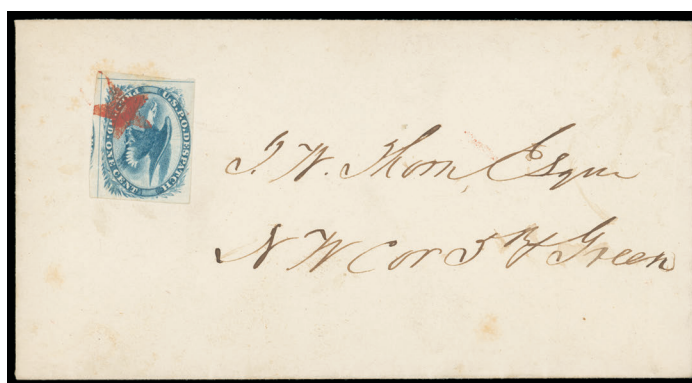 U.S.P.O. DESPATCH.
PRE-PAID. ONE CENT
J. W. Thorn, Esqur
N W Cor 5th & Green